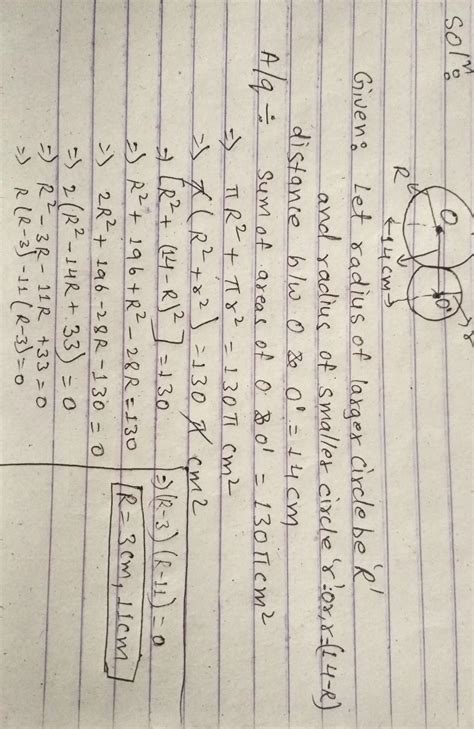 SOlⁿ:
R
O
O'
r
←14cm→
Given: Let radius of larger circle be 'R'
and radius of smaller circle 'r': or, r=(14-R)
distance b/w O & O' = 14cm
A/q ÷ Sum of areas of O & O' = 130π cm²
⇒ πR² + πr² = 130π cm²
⇒ π(R² + r²) = 130 π cm²
⇒ [R² + (14-R)²] = 130
⇒ R² + 196 + R² - 28R = 130
⇒ 2R² + 196 - 28R - 130 = 0
⇒ 2(R² - 14R + 33) = 0
⇒ R² - 3R - 11R + 33 = 0
⇒ R(R-3) - 11(R-3) = 0
⇒ (R-3) (R-11) = 0
R = 3cm, 11cm